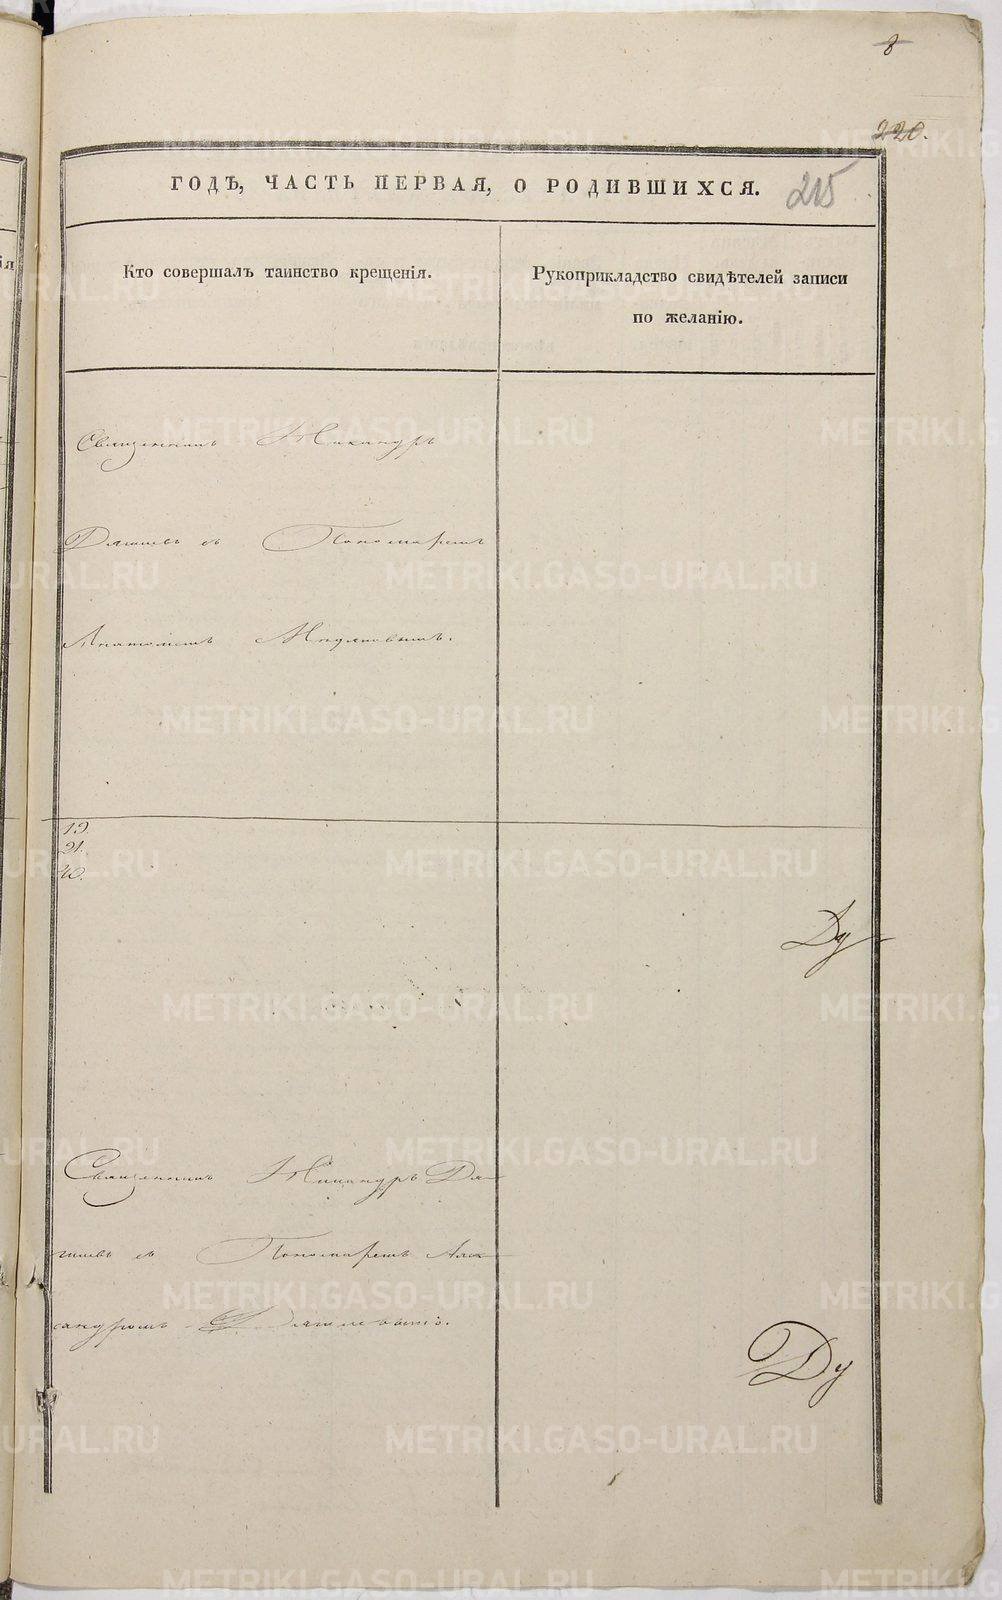 8
220.
215
ГОДЪ, ЧАСТЬ ПЕРВАЯ, О РОДИВШИХСЯ.
Кто совершалъ таинство крещенія.
Рукоприкладство свидѣтелей записи
по желанію.
Священникъ Никандръ
съ Пономаремъ
19.
21.
40.
Ду
Священникъ Никандръ Дя
съ Пономаремъ Алек
сандромъ
Ду
METRIKI.GASO-URAL.RU